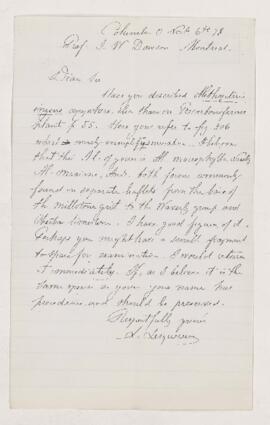 Columbus O Nov 6th 78
Prof. J. W. Dawson Montreal
Dear Sir
Have you described Alethopteris
anywhere, else than on Precarboniferous
plants p 55. Here you refer to fig 206
which is merely
that this Al. of yours is Al. macrophylla Newby
Al. And. both forms commonly
found in separate leaflets from the base of
the millstone grit to the Waverly group and
Chester limestone. I have good figures of it.
Perhaps you might have a small fragment
to spare for examination. I would return
it immediately. If, as I believe it is the
same species as yours your name has
precedence and should be preserved.
Respectfully yours
L. Lesquereux